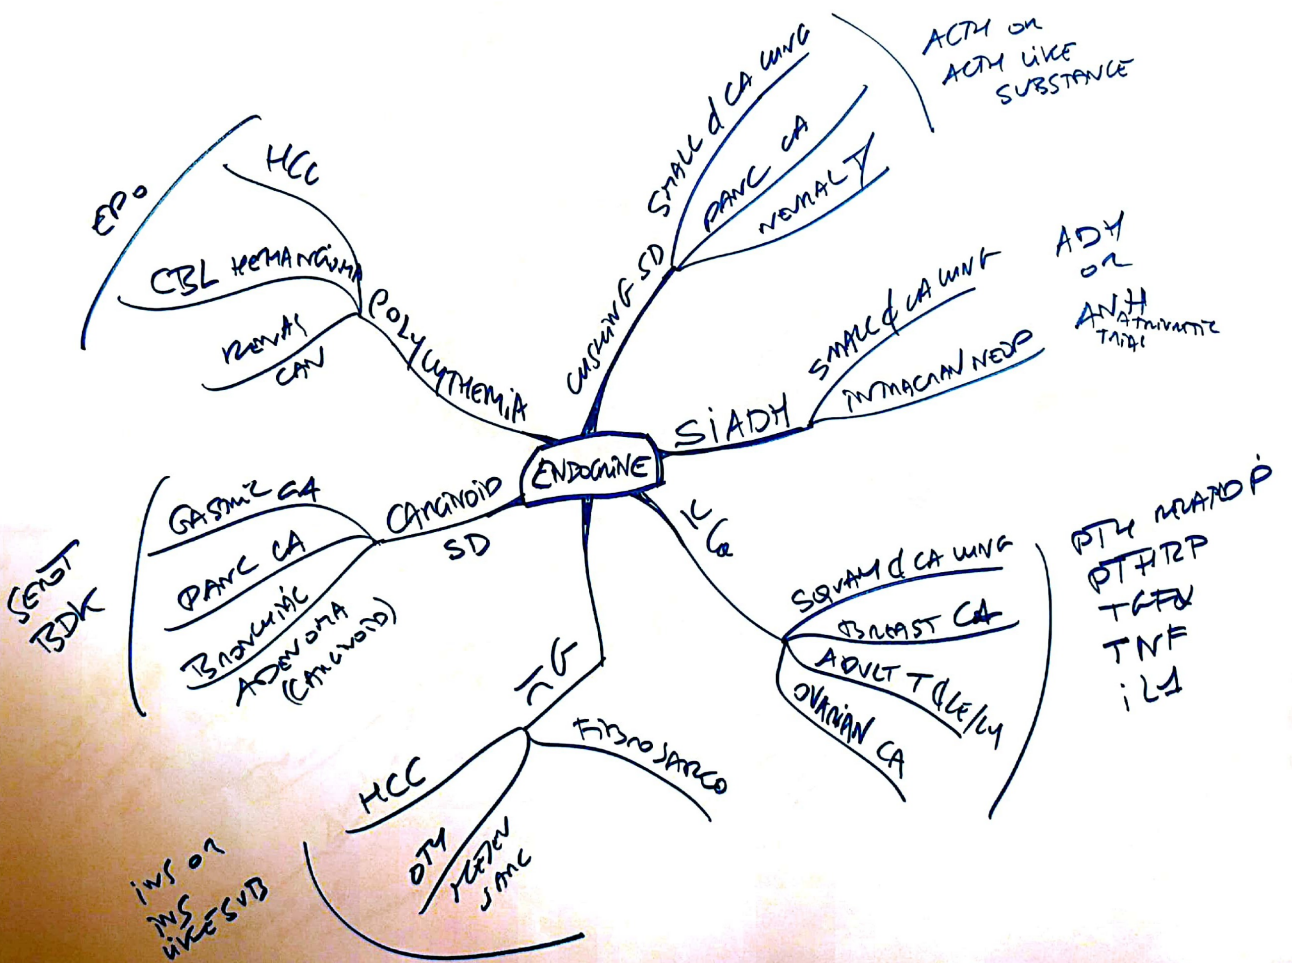 ENDOCRINE
CUSHING SD
SMALL ₵ CA LUNG
PANC CA
NEURAL T
ACTH OR
ACTH LIKE
SUBSTANCE
SIADH
SMALL ₵ CA LUNG
INTRACRAN NEOP
ADH
OR
ANH
ATRIURETIC
SQUAM ₵ CA LUNG
BREAST CA
ADULT T ₵ LE/LY
OVARIAN CA
PTH RELATED P
PTHRP
TGFα
TNF
IL1
G
FIBROSARCO
OTH
MESEN
SARC
HCC
INS OR
INS
LIKE SUB
CARCINOID
SD
GASTRIC CA
PANC CA
BRONCHIAL
ADENOMA
(CARCINOID)
SEROT
BDK
POLYCYTHEMIA
HCC
CBL HEMANGIOMA
RENAL
CAN
EPO